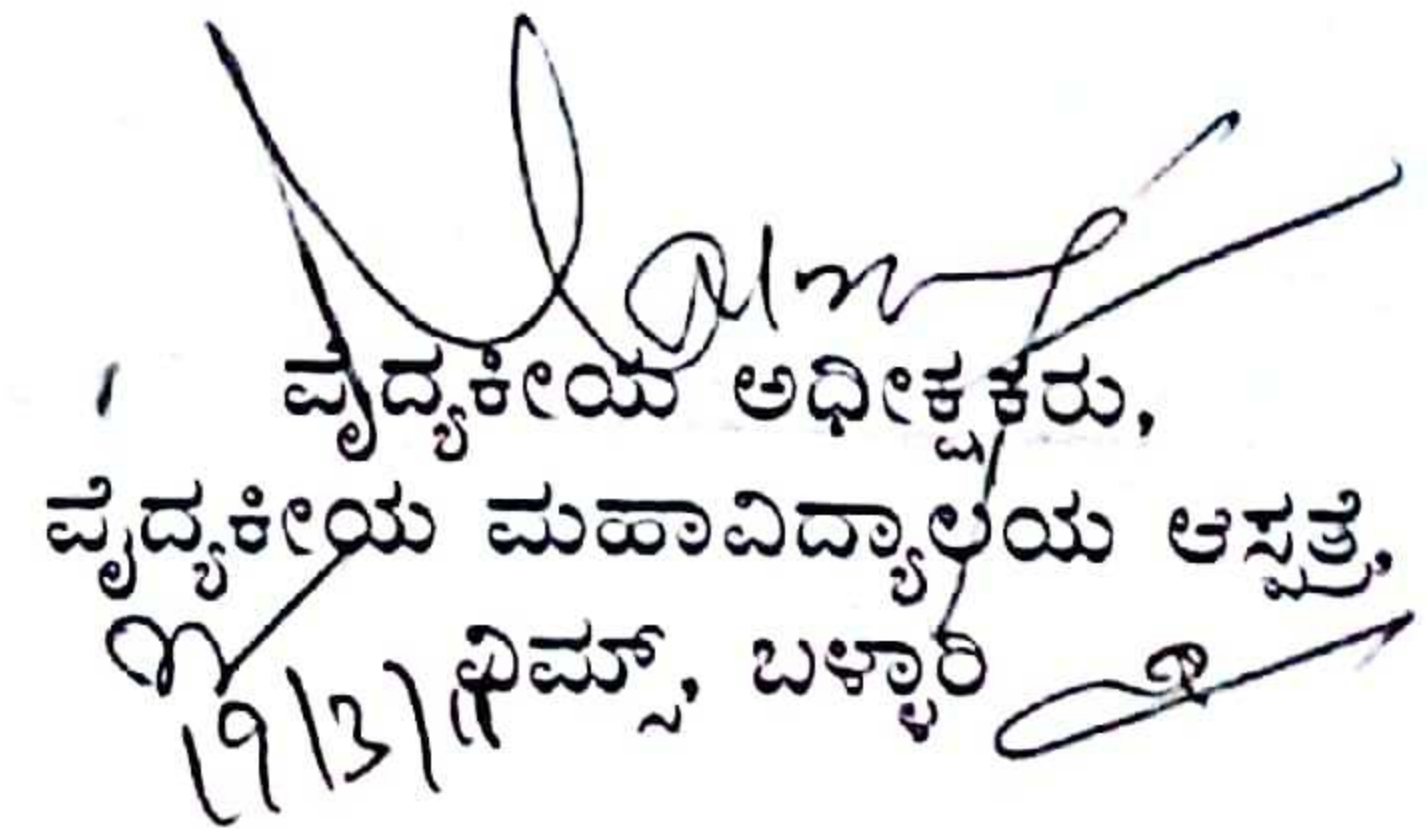 ವೈದ್ಯಕೀಯ ಅಧೀಕ್ಷಕರು,
ವೈದ್ಯಕೀಯ ಮಹಾವಿದ್ಯಾಲಯ ಆಸ್ಪತ್ರೆ,
ವಿಮ್ಸ್, ಬಳ್ಳಾರಿ
19/3/